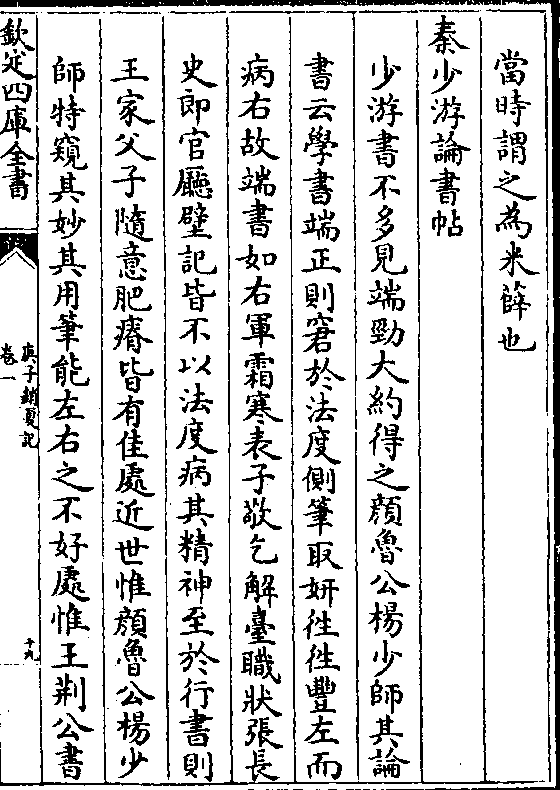 當時謂之為米薛也
秦少游論書帖
少游書不多見端勁大約得之顔魯公楊少師其論
書云學書端正則窘於法度側筆取妍徃徃豐左而
病右故端書如右軍霜寒表子敬乞解臺職狀張長
史郎官廳壁記皆不以法度病其精神至於行書則
王家父子隨意肥瘠皆有佳處近世惟顔魯公楊少
師特窺其妙其用筆能左右之不好處惟王荆公書
欽定四庫全書
庚子銷夏記
卷一
十九